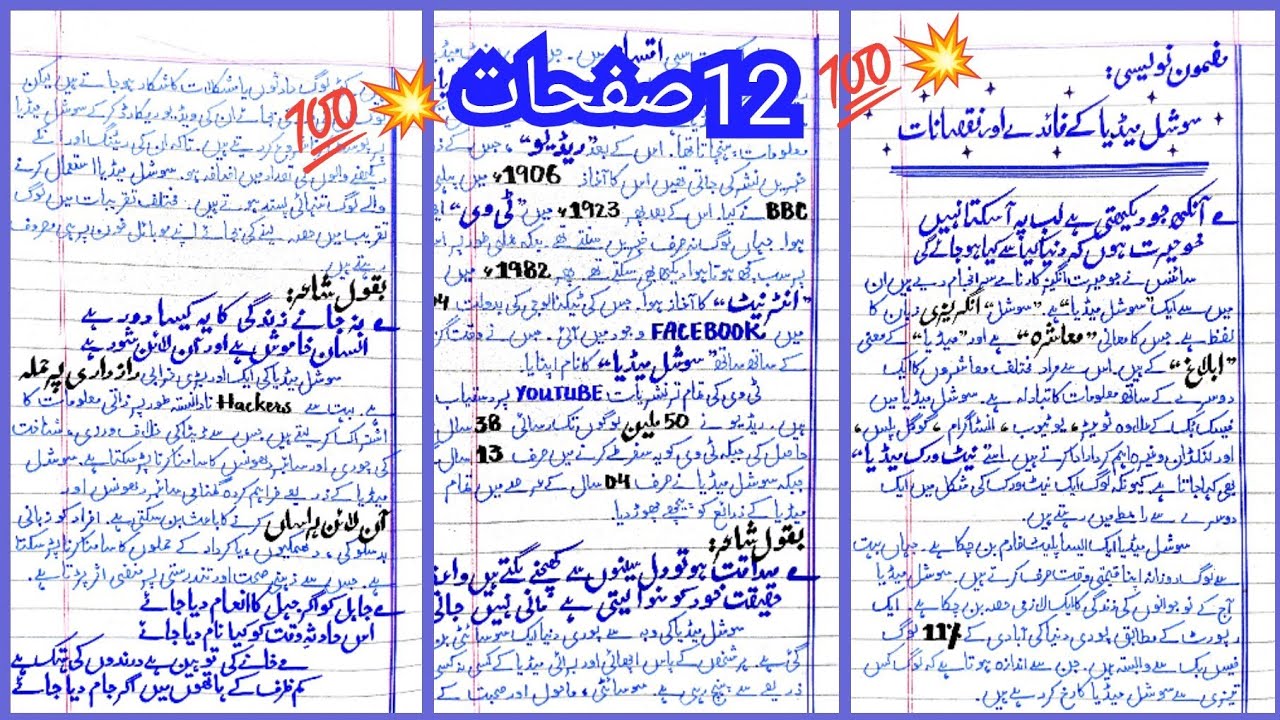 12 صفحات
مضمون نویسی:
سوشل میڈیا کے فائدے اور نقصانات
آنکھ جو دیکھتی ہے لب پہ آسکتا نہیں
محو حیرت ہوں کہ دنیا کیا سے کیا ہو جائے گی
سائنس نے جو حیرت انگیز کارنامے سر انجام دیے ہیں ان
میں سے ایک "سوشل میڈیا" ہے۔ "سوشل" انگریزی زبان کا
لفظ ہے جس کا معانی "معاشرہ" ہے اور "میڈیا" کے معنی
"ابلاغ" کے ہیں۔ اس سے مراد مختلف معاشروں کا ایک
دوسرے کے ساتھ معلومات کا تبادلہ ہے۔ سوشل میڈیا میں
فیسک بک کے علاوہ ٹویٹر، یوٹیوب، انسٹاگرام، گوگل پلس،
اور لنکڈان وغیرہ اہم کردار ادا کرتے ہیں۔ اسے "نیٹ ورک میڈیا"
بھی کہا جاتا ہے کیونکہ لوگ ایک نیٹ ورک کی شکل میں ایک
دوسرے سے رابطے میں رہتے ہیں۔
سوشل میڈیا ایک ایسا پلیٹ فارم بن چکا ہے۔ جہاں بہت
سے لوگ روزانہ اپنا قیمتی وقت صرف کرتے ہیں۔ سوشل میڈیا
آج کے نوجوانوں کی زندگی کا ایک لازمی حصہ بن چکا ہے۔ ایک
رپورٹ کے مطابق پوری دنیا کی آبادی کے 11% لوگ
فیس بک سے وابستہ ہیں۔ جن سے اندازہ ہوتا ہے کہ لوگ کس
تیزی سے سوشل میڈیا کا رخ کر رہے ہیں۔
معلومات پہنچاتا تھا۔ اس کے بعد "ریڈیو"، جس کے
خبریں نشر کی جاتی تھیں اس کا آغاز 1906ء میں پہلی
BBC نے کیا۔ اس کے بعد پھر 1923ء میں "ٹی وی"
ہوا۔ جہاں لوگ نہ صرف خبریں سنتے تھے بلکہ عملی طور پر
پر سب کچھ ہوتا ہوا دیکھ بھی سکتے تھے۔ پھر 1982ء میں
"انٹرنیٹ" کا آغاز ہوا۔ جس کی ٹیکنالوجی کی بدولت 04
میں FACEBOOK وجود میں آئی۔ جس نے وقت گزرنے
کے ساتھ ساتھ "سوشل میڈیا" کا نام اپنایا۔
ٹی وی کی تمام تر نشریات YOUTUBE پر دستیاب
ہیں۔ ریڈیو نے 50 ملین لوگوں تک رسائی 38 سال
حاصل کی جبکہ ٹی وی کو یہ سفر طے کرنے میں صرف 13 سال
جبکہ سوشل میڈیا نے صرف 04 سال کے عرصے میں تمام
میڈیا کے ذرائع کو پیچھے چھوڑ دیا۔
بقول شاعر:
صداقت ہو تو دل سینوں سے کھنچنے لگتے ہیں واعظ
حقیقت خود کو منوا لیتی ہے مانی نہیں جاتی
سوشل میڈیا کی وجہ سے پوری دنیا ایک سوسائٹی بن
گئی ہے۔ ہر شخص کے پاس اچھائی اور برائی میڈیا کے کسی نہ کسی
ذریعے سے پہنچ رہی ہے۔ سوسائٹی، ماحول اور صحبت کے
ہیں۔ کئی لوگ حادثوں یا مشکلات کا شکار ہو جاتے ہیں لیکن
بجائے ان کی ویڈیو ریکارڈ کر کے سوشل میڈیا
پر پوسٹ کرنا شروع کر دیتے ہیں۔ تاکہ ان کی ریٹنگ اور نئے
دیکھنے والوں کی تعداد میں اضافہ ہو۔ سوشل میڈیا استعمال کرنے
والے لوگ تنہائی پسند ہوتے ہیں۔ مختلف تقریبات میں لوگ
تقریب میں حصہ لینے کی بجائے اپنے موبائل فون پر ہی مصروف
رہتے ہیں۔
بقول شاعر:
نہ جانے زندگی کا یہ کیسا دور ہے
انسان خاموش ہے اور آن لائن شور ہے
سوشل میڈیا کی ایک اور بڑی خرابی رازداری پر حملہ
ہے۔ بہت سے Hackers نادانستہ طور پر ذاتی معلومات کا
اشتراک کر لیتے ہیں جس سے ڈیٹا کی خلاف ورزی، شناخت
کی چوری اور سائبر دھونس کا سامنا کرنا پڑ سکتا ہے۔ سوشل
میڈیا کے ذریعے فراہم کردہ گمنامی سائبر دھونس اور
آن لائن ہراساں کرنے کا باعث بن سکتی ہے۔ افراد کو زبانی
بدسلوکی، دھمکیوں، یا کردار کے حملوں کا سامنا کرنا پڑ سکتا
ہے۔ جس سے ذہنی صحت اور تندرستی پر منفی اثر پڑتا ہے۔
جاہل کو اگر جہل کا انعام دیا جائے
اس حادثہ وقت کو کیا نام دیا جائے
مے خانے کی توہین ہے رندوں کی ہتک ہے
کم ظرف کے ہاتھوں میں اگر جام دیا جائے